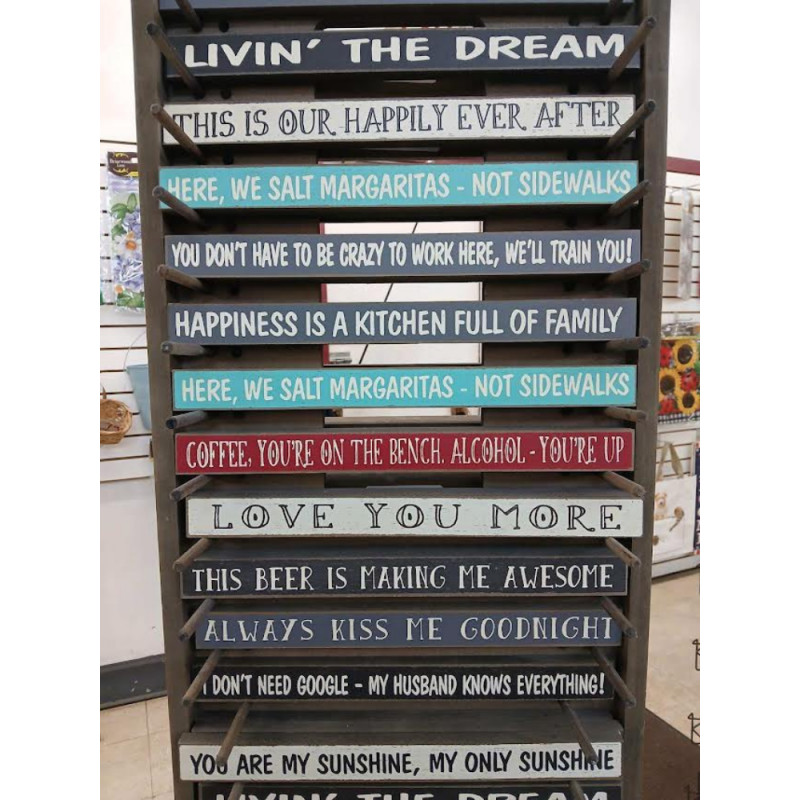 LIVIN' THE DREAM
THIS IS OUR HAPPILY EVER AFTER
HERE, WE SALT MARGARITAS - NOT SIDEWALKS
YOU DON'T HAVE TO BE CRAZY TO WORK HERE, WE'LL TRAIN YOU!
HAPPINESS IS A KITCHEN FULL OF FAMILY
HERE, WE SALT MARGARITAS - NOT SIDEWALKS
COFFEE, YOU'RE ON THE BENCH. ALCOHOL - YOU'RE UP
LOVE YOU MORE
THIS BEER IS MAKING ME AWESOME
ALWAYS KISS ME GOODNIGHT
I DON'T NEED GOOGLE - MY HUSBAND KNOWS EVERYTHING!
YOU ARE MY SUNSHINE, MY ONLY SUNSHINE
LIVIN' THE DREAM